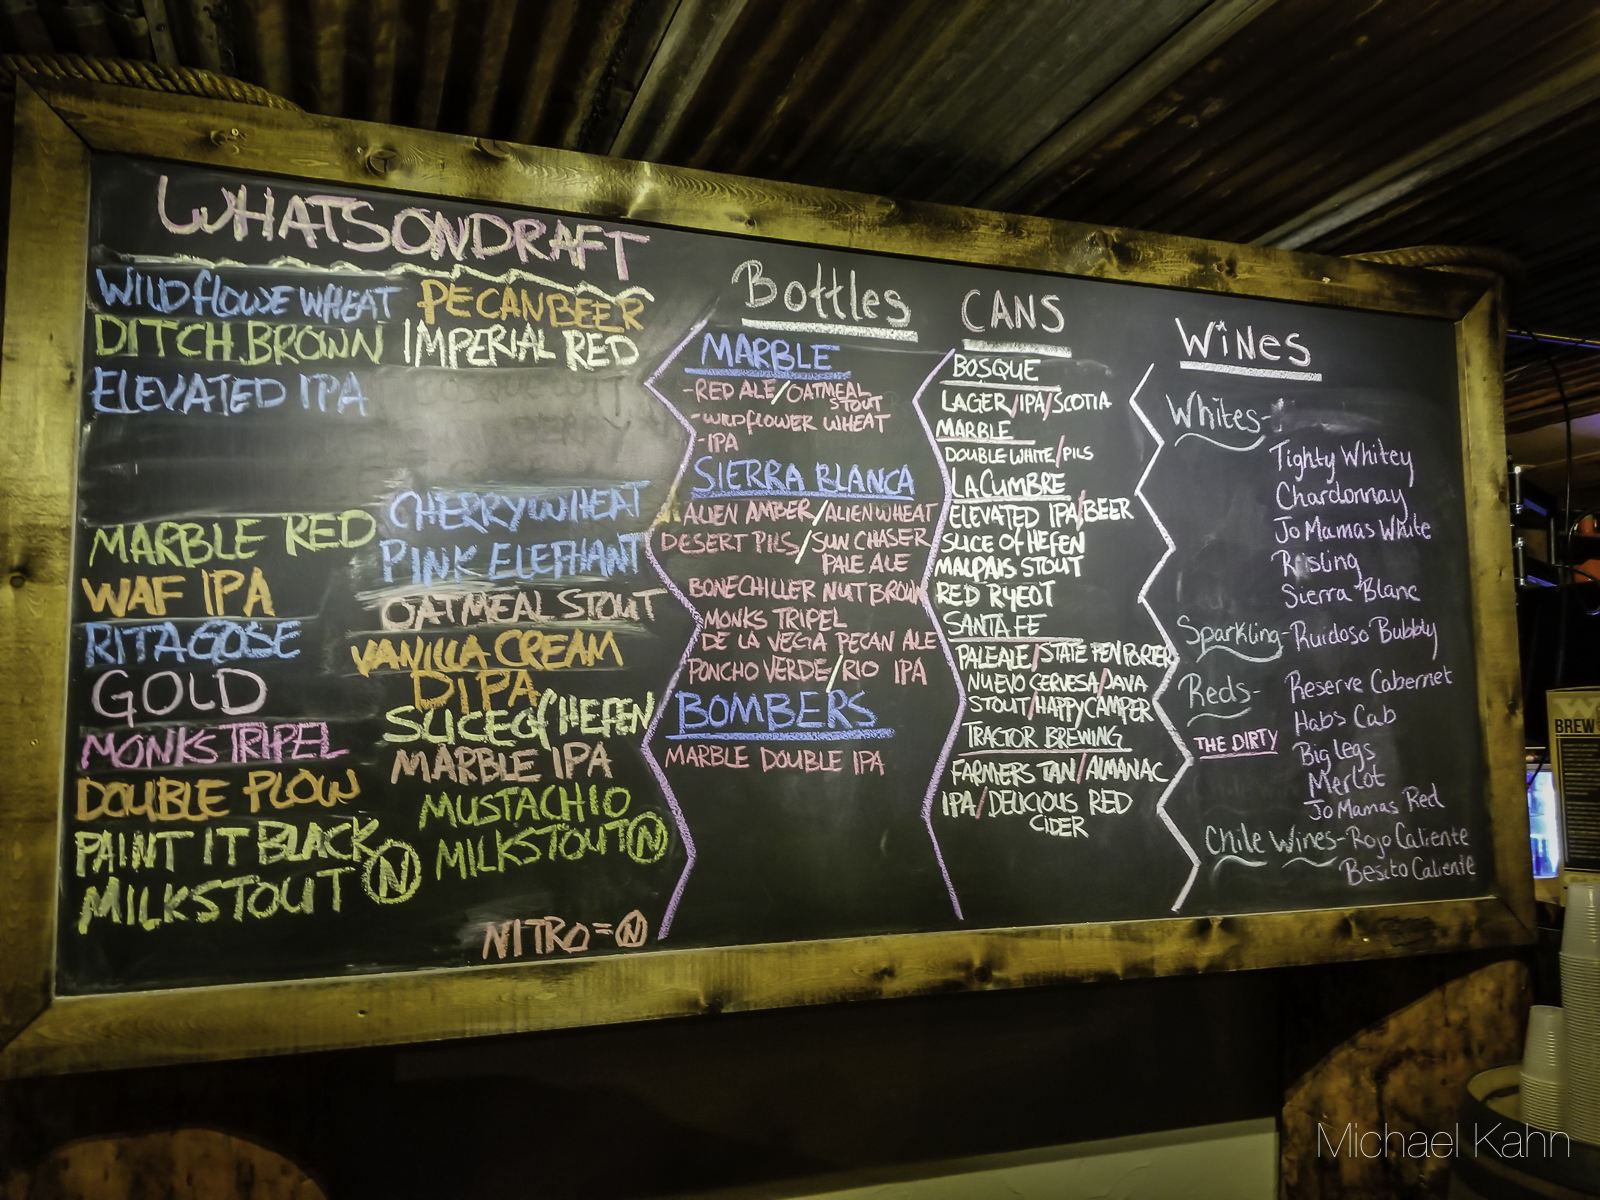 WHATSONDRAFT
WILDflOWE WHEAT
PECANBEER
DITCH.BROWN
IMPERIAL RED
ELEVATED IPA
CHERRYWHEAT
MARBLE RED
PINK ELEPHANT
WAF IPA
OATMEAL STOUT
RITAGOSE
VANILLA CREAM
GOLD
DIPA
SLICEOfHEFEN
MONKSTRIPEL
MARBLE IPA
DOUBLE PLOW
MUSTACHIO
PAINT IT BLACK
MILKSTOUT N
MILKSTOUT N
NITRO=N
Bottles
MARBLE
-RED ALE/OATMEAL
STOUT
-WILDFLOWER WHEAT
-IPA
SIERRA BLANCA
ALIEN AMBER/ALIENWHEAT
DESERT PILS/SUN CHASER
PALE ALE
BONECHILLER NUT BROWN
MONKS TRIPEL
DE LA VEGA PECAN ALE
PONCHO VERDE/RIO IPA
BOMBERS
MARBLE DOUBLE IPA
CANS
BOSQUE
LAGER/IPA/SCOTIA
MARBLE
DOUBLE WHITE/PILS
LA CUMBRE
ELEVATED IPA/BEER
SLICE Of HEFEN
MALPAIS STOUT
RED RYEOT
SANTA FE
PALEALE/STATE PEN PORTER
NUEVO CERVESA/JAVA
STOUT/HAPPYCAMPER
TRACTOR BREWING
FARMERS TAN/ALMANAC
IPA/DELICIOUS RED
CIDER
WiNES
Whites-
Tighty Whitey
Chardonnay
Jo Mamas White
Risling
Sierra Blanc
Sparkling-Ruidoso Bubbly
Reds- Reserve Cabernet
Habs Cab
THE DIRTY
Big legs
Merlot
Jo Mamas Red
Chile Wines-Rojo Caliente
Besito Caliente
BREW
Michael Kahn